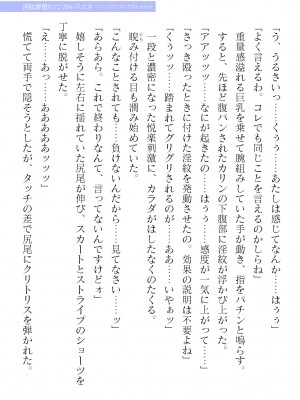 「う、うるさいっ……くぅ……あたしは感じてなんか……はぅぅ」
「よく言えるわね。コレでも同じことを言えるのかしらね」
重量感溢れる巨乳を乗せて腕組みしていた手が動き、指をパチンと鳴らす。
すると、先ほど腹パンされたカリンの下腹部に淫紋が浮かび上がった。
「アアッッッ……なにが起きたの……はぅぅ……感度が一気に上がって……」
「さっき殴ったときに付けた淫紋を発動させたの。効果の説明は不要よね」
「くぅッッ……踏まれてグリグリされるのが……ああ……いやぁッ」
一段と濃密になった悦楽刺激に、カラダがはしたなくのたくる。
睨み付ける目も潤み始めていた。
「こんなことされても……負けないんだから……見てなさい……ッ」
「あらあら。これで終わりなんて、言ってないんですけどォ」
嬉しそうに左右に揺れていた尻尾が伸び、スカートとストライプのショーツを
丁寧に脱がせた。
「え……あっ……あああああッッ」
慌てて両手で隠そうとしたが、タッチの差で尻尾にクリトリスを弾かれた。